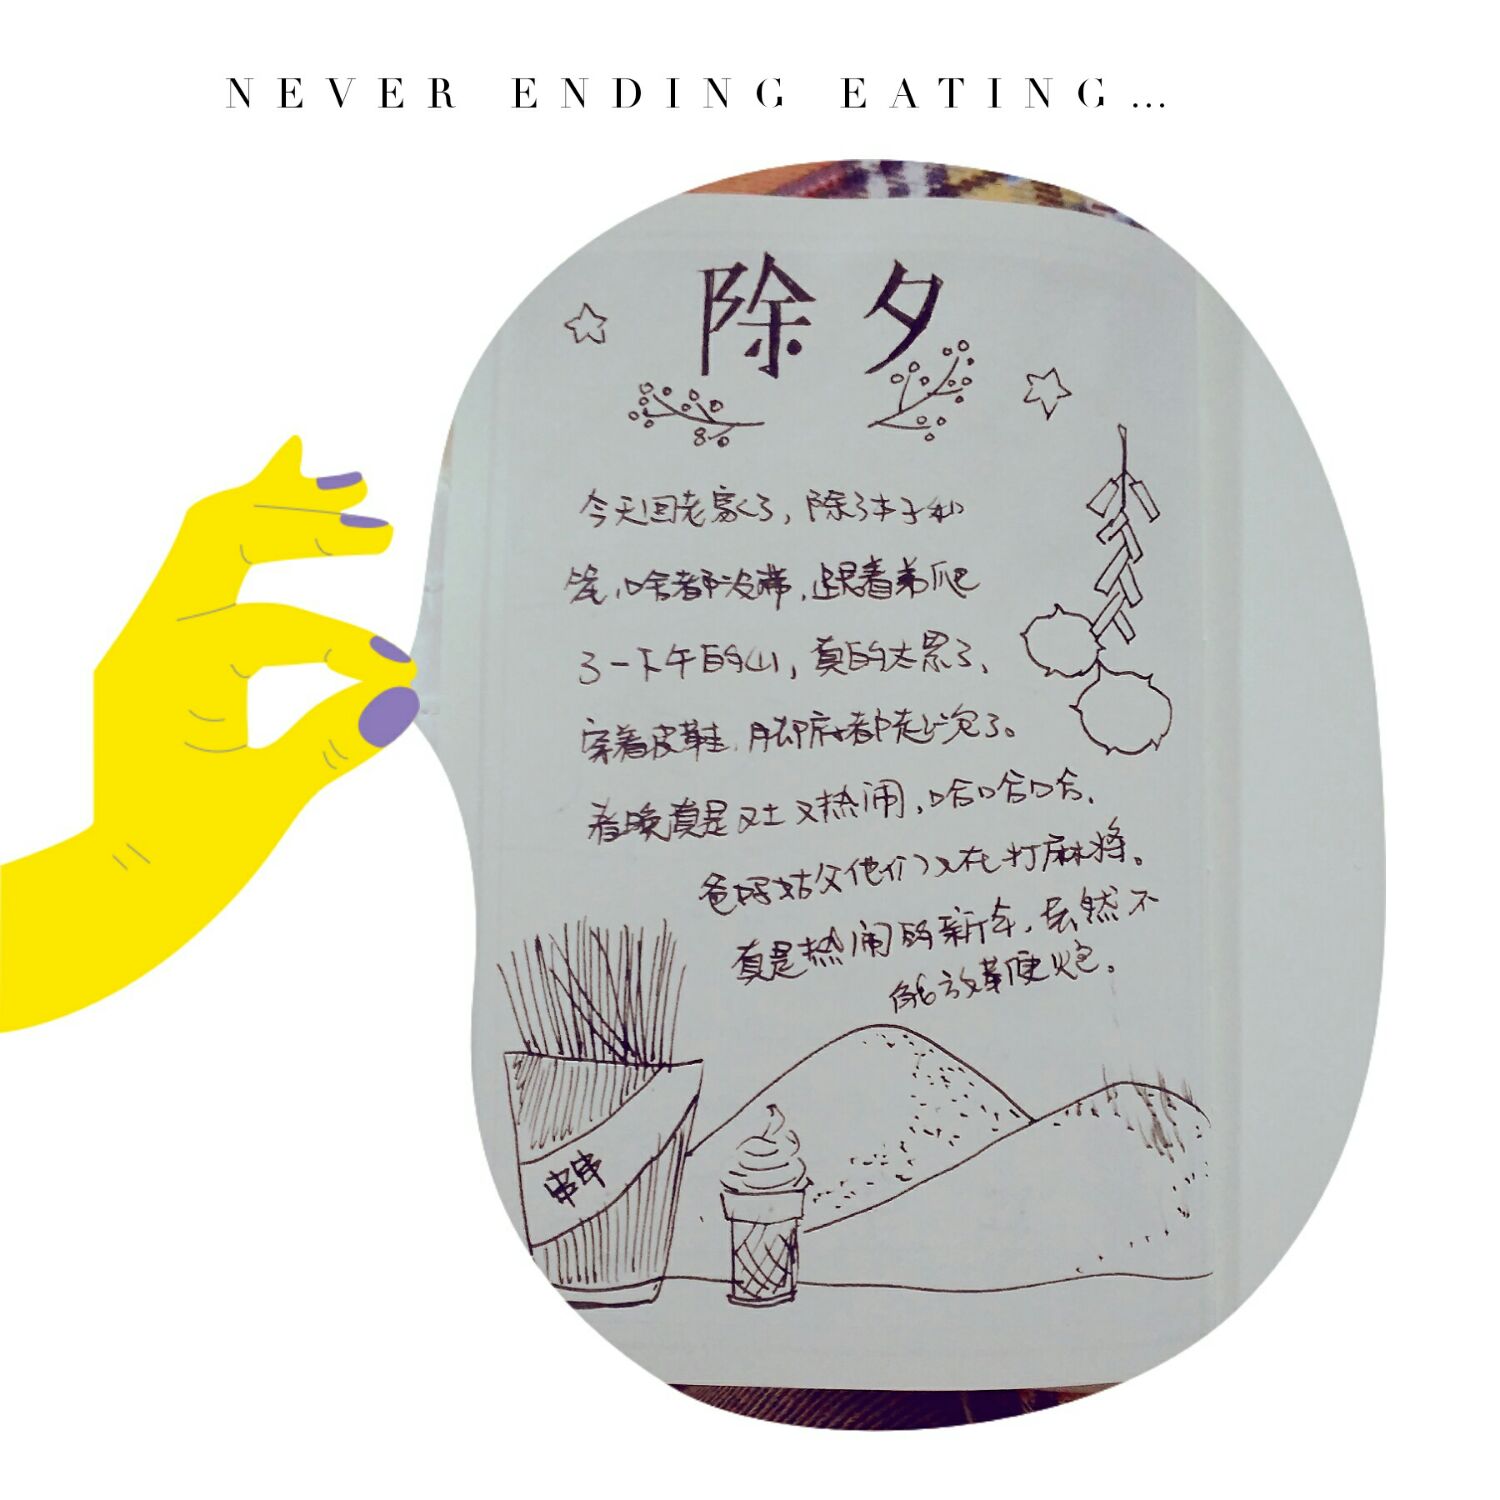 NEVER ENDING EATING...
除夕
今天回老家了，除了本子和
笔，啥都没带，跟着弟爬
了一下午的山，真的太累了，
穿着皮鞋，脚底都走出泡了。
春晚真是又土又热闹，哈哈哈，
爸妈姑父他们又在打麻将。
真是热闹的新年，虽然不
能放鞭炮。
串串